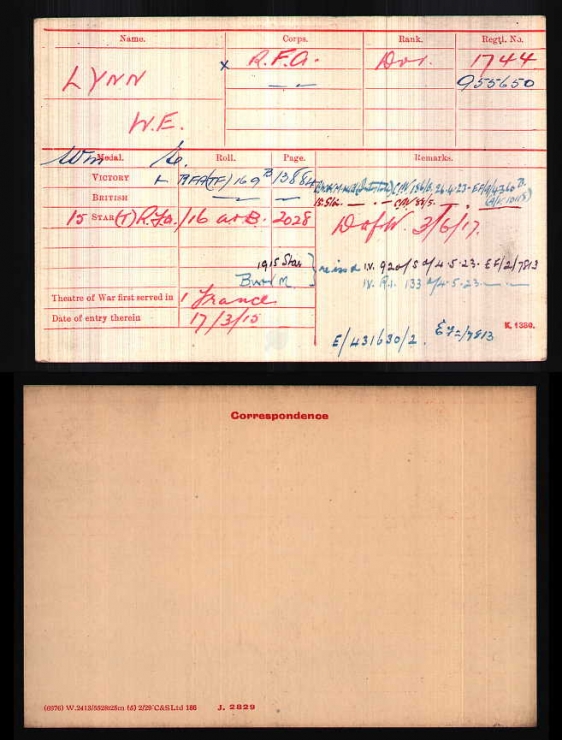 Name. Corps. Rank. Regtl. No.
LYNN x R.F.A. Dvr. 1744
955650
W.E.
Wm E.
Medal. Roll. Page. Remarks.
VICTORY RFA(TF) 169 B 13884
BRITISH
15 STAR (T) R.Fa./16 a or B. 2028
D of W. 3/6/17.
1915 Star } reissd IV. 920/5 d/4.5.23. EF/2/7813
B W M. IV. R.I. 133 d/4.5.23.
Theatre of War first served in 1 France
Date of entry therein 17/3/15
E/431630/2. EF2/7813
K. 1380.
Correspondence
(6376) W.2413/ 2/20 C&S Ltd 186 J. 2829